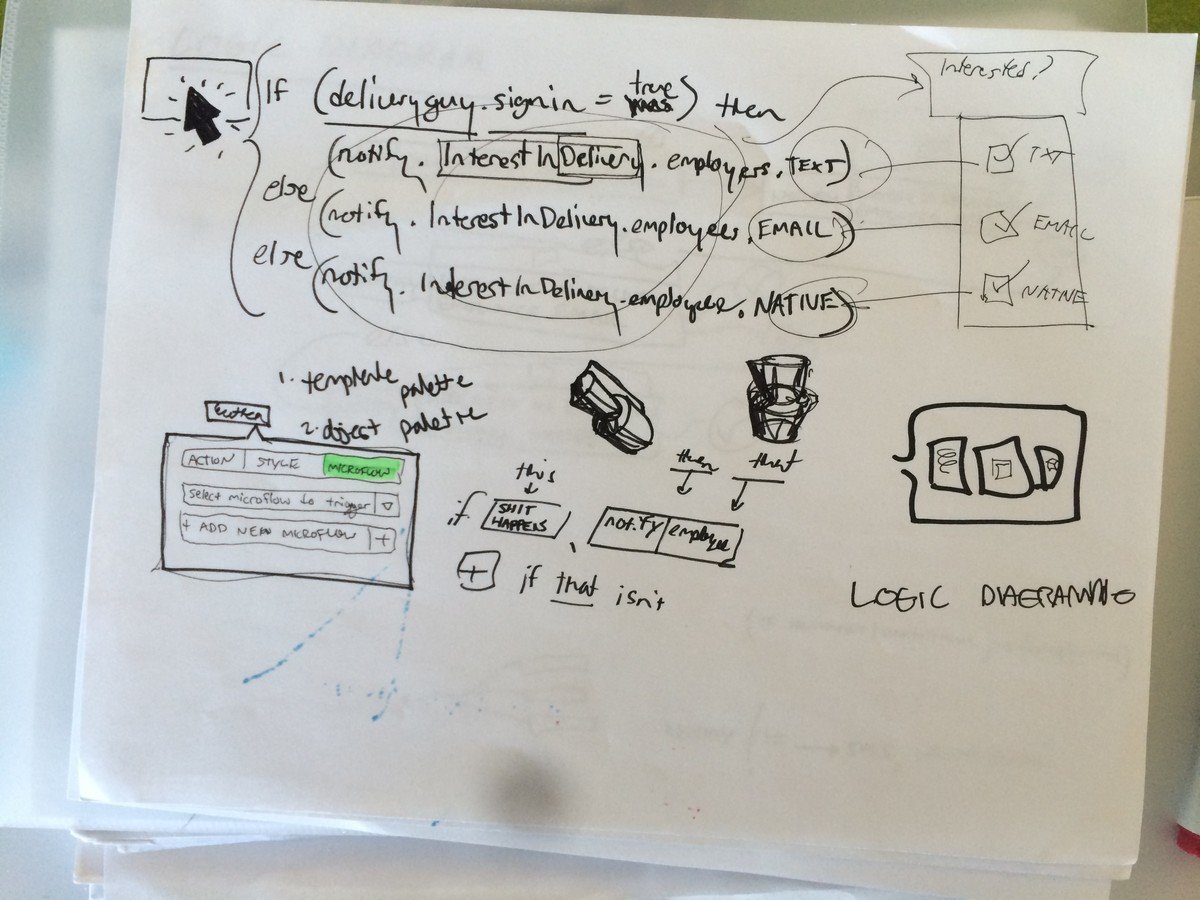 If (deliveryguy.signin = true) then
(notify. InterestInDelivery. employees, TEXT)
else (notify. InterestInDelivery.employees, EMAIL)
else (notify. InterestInDelivery.employees, NATIVE)
Interested?
TXT
EMAIL
NATIVE
1. template palette
2. object palette
button
ACTION STYLE MICROFLOW
select microflow to trigger
+ ADD NEW MICROFLOW +
this then that
if SHIT HAPPENS, notify employee
+ if that isn't
LOGIC DIAGRAMMING